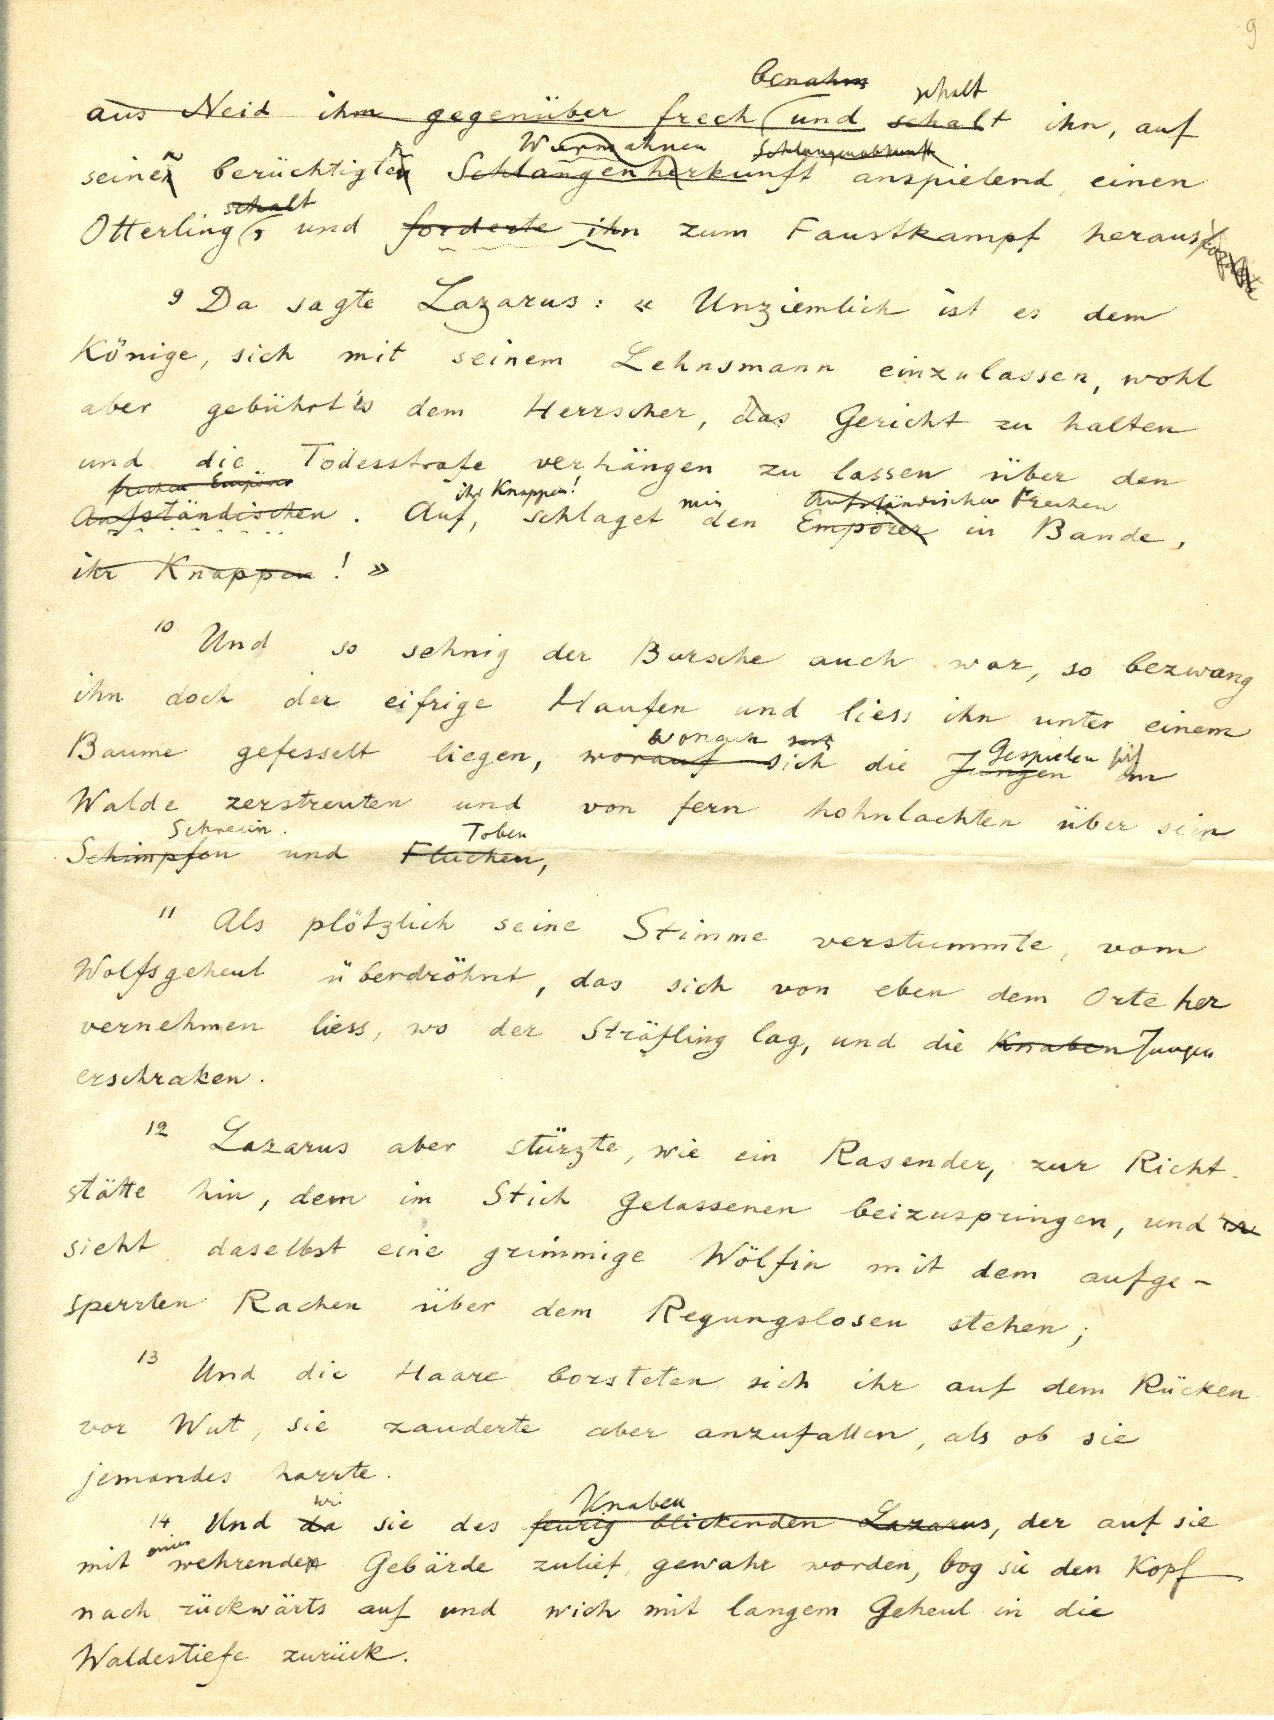 9
benahm schalt
aus Neid ihm gegenüber frech (und schalt ihn, auf
Wurmahnen Schlangenabkunft
seinen berüchtigten Schlangenherkunft anspielend, einen
schalt
Otterling, und forderte ihn zum Faustkampf heraus
9 Da sagte Lazarus: « Unziemlich ist es dem
Könige, sich mit seinem Lehnsmann einzulassen, wohl
aber gebührt's dem Herrscher, das Gericht zu halten
und die Todesstrafe verhängen zu lassen über den
frechen Empörer ihr Knappen! mir Aufständischen Frechen
Aufständischen. Auf, schlaget den Empörer in Bande,
ihr Knappen! »
10 Und so sehnig der Bursche auch war, so bezwang
ihn doch der eifrige Haufen und liess ihn unter einem
wonach Gespielen
Baume gefesselt liegen, worauf sich die Jungen im
Walde zerstreuten und von fern hohnlachten über sein
Schreien Toben
Schimpfen und Fluchen,
11 Als plötzlich seine Stimme verstummte, vom
Wolfsgeheul überdröhnt, das sich von eben dem Orte her
vernehmen liess, wo der Sträfling lag, und die Knaben Jungen
erschraken.
12 Lazarus aber stürzte, wie ein Rasender, zur Richt-
stätte hin, dem im Stich Gelassenen beizuspringen, und er
sieht daselbst eine grimmige Wölfin mit dem aufge-
sperrten Rachen über dem Regungslosen stehen;
13 Und die Haare borsteten sich ihr auf dem Rücken
vor Wut, sie zauderte aber anzufallen, als ob sie
jemandes harrte.
wie Knaben
14 Und da sie des feurig blickenden Lazarus, der auf sie
mit wehrender Gebärde zulief, gewahr worden, bog sie den Kopf
nach rückwärts auf und wich mit langem Geheul in die
Waldestiefe zurück.